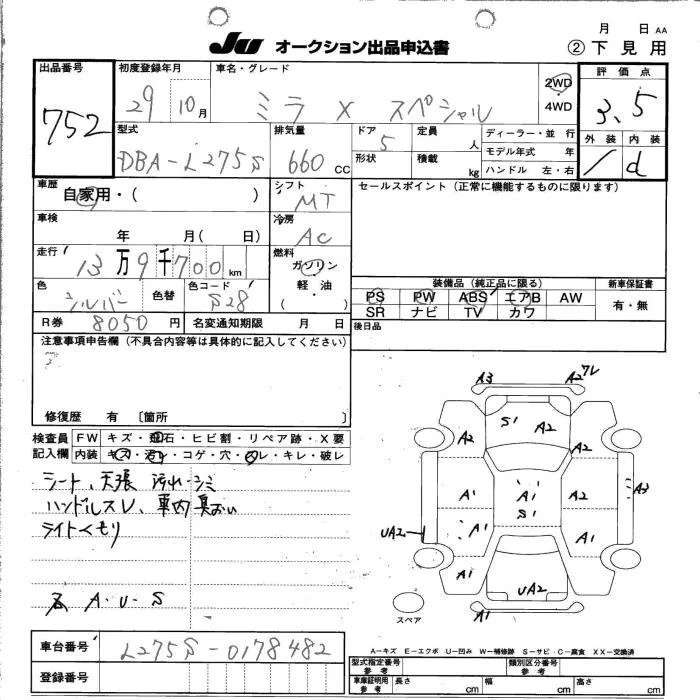 月 日 AA
JU オークション出品申込書 ②下見用
出品番号 752
初度登録年月 29 10月
車名・グレード ミラ X スペシャル
2WD
4WD
評価点 3.5
外装 内装
/ d
型式 DBA-L275S
排気量 660 CC
ドア 5
形状
定員 人
積載 kg
ディーラー・並 行
モデル年式 年
ハンドル 左・右
車歴 自家用・( )
シフト MT
セールスポイント(正常に機能するものに限ります)
車検 年 月( 日)
冷房 AC
走行 13万9千700km
燃料 ガソリン
軽・油
・( )
色 シルバー 色替
色コード S28
装備品(純正品に限る)
新車保証書
PS PW ABS エアB AW
SR ナビ TV カワ
有・無
R券 8050円
名変通知期限 月 日
後日品
注意事項申告欄(不具合内容等は具体的に記入してください)
修復歴 有 〔箇所 〕
検査員記入欄
FW キズ・飛石・ヒビ割・リペア跡・X要
内装 キズ・汚レ・コゲ・穴・スレ・キレ・破レ
シート、天張 汚れシミ
ハンドルスレ、車内臭おい
ライトくもり
A・U・S
A3 A2 フレ
S1
A2 A2
A1 A1 S1 A2 A3
UA2 A1 A1
A1 UA2
A1
スペア
A-キズ E-エクボ U-凹み W-補修跡 S-サビ・C-腐食 XX-交換済
車台番号 L275S-0178482
登録番号
型式指定番号 参考
類別区分番号 参考
車庫証明用 参考
長さ cm 幅 cm 高さ cm